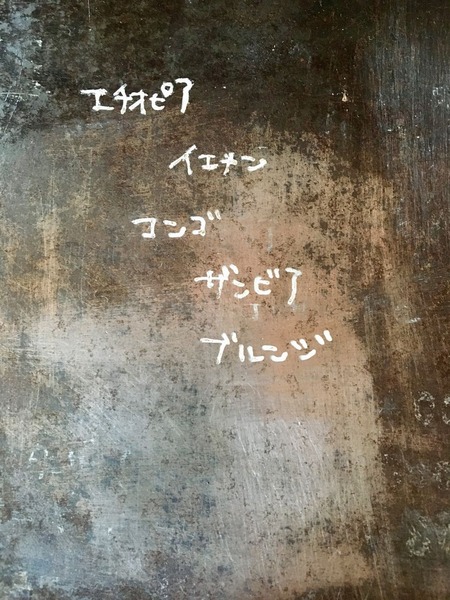 エチオピア
イエメン
コンゴ
ザンビア
ブルンジ